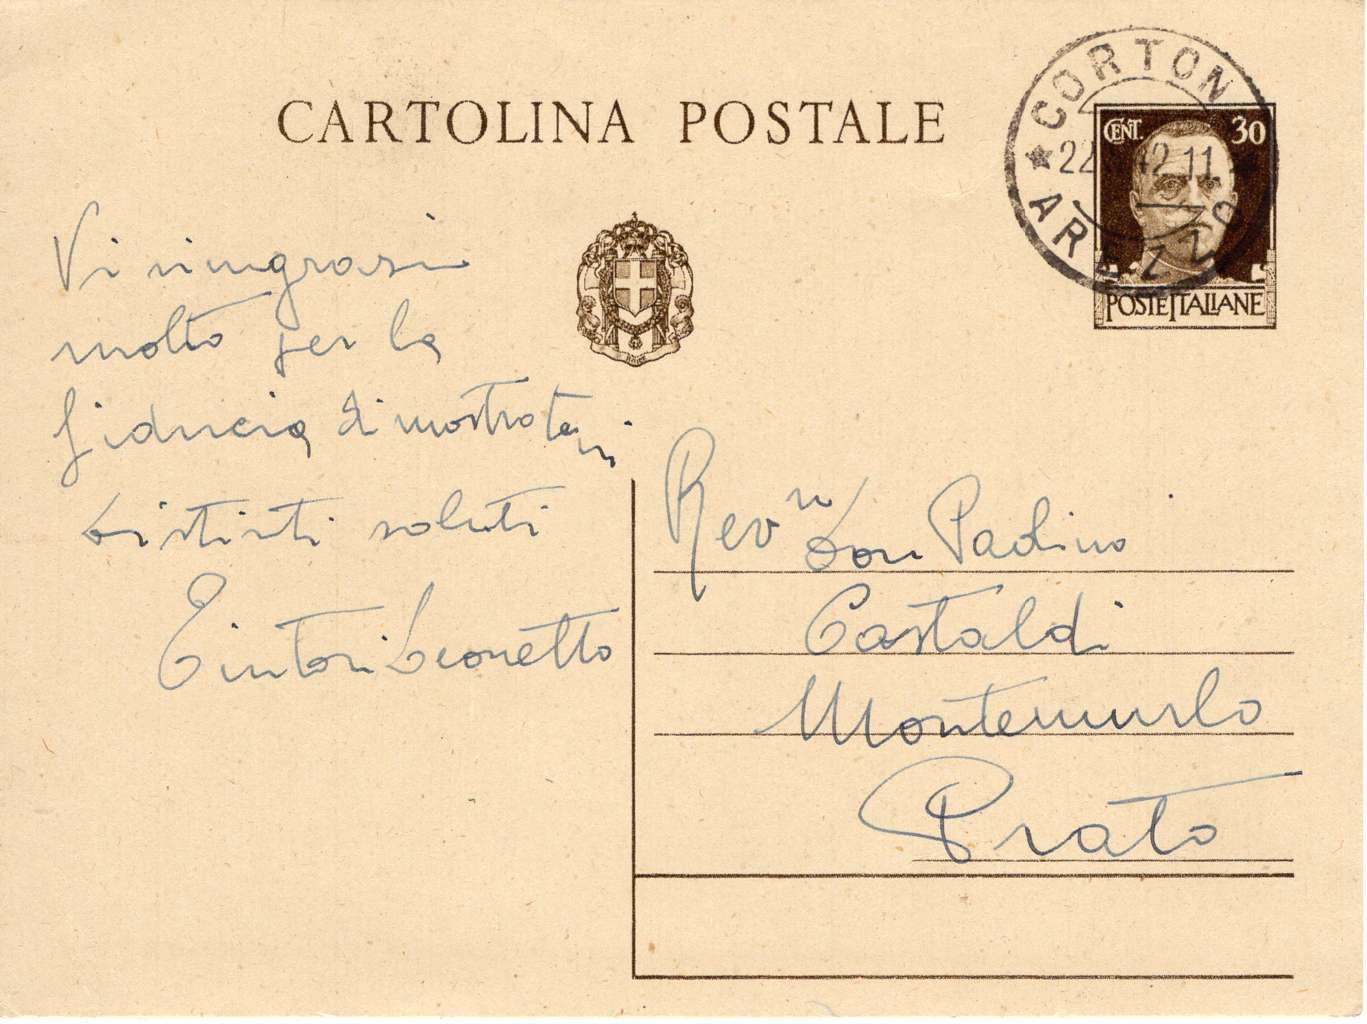 CARTOLINA POSTALE
CORTON
22 42 11
AREZZO
CENT. 30
POSTE ITALIANE
Vi ringrazio
molto per la
fiducia dimostratami
Distinti saluti
Tintori Leonetto
Rev. Don
Castaldi
Montemurlo
Prato